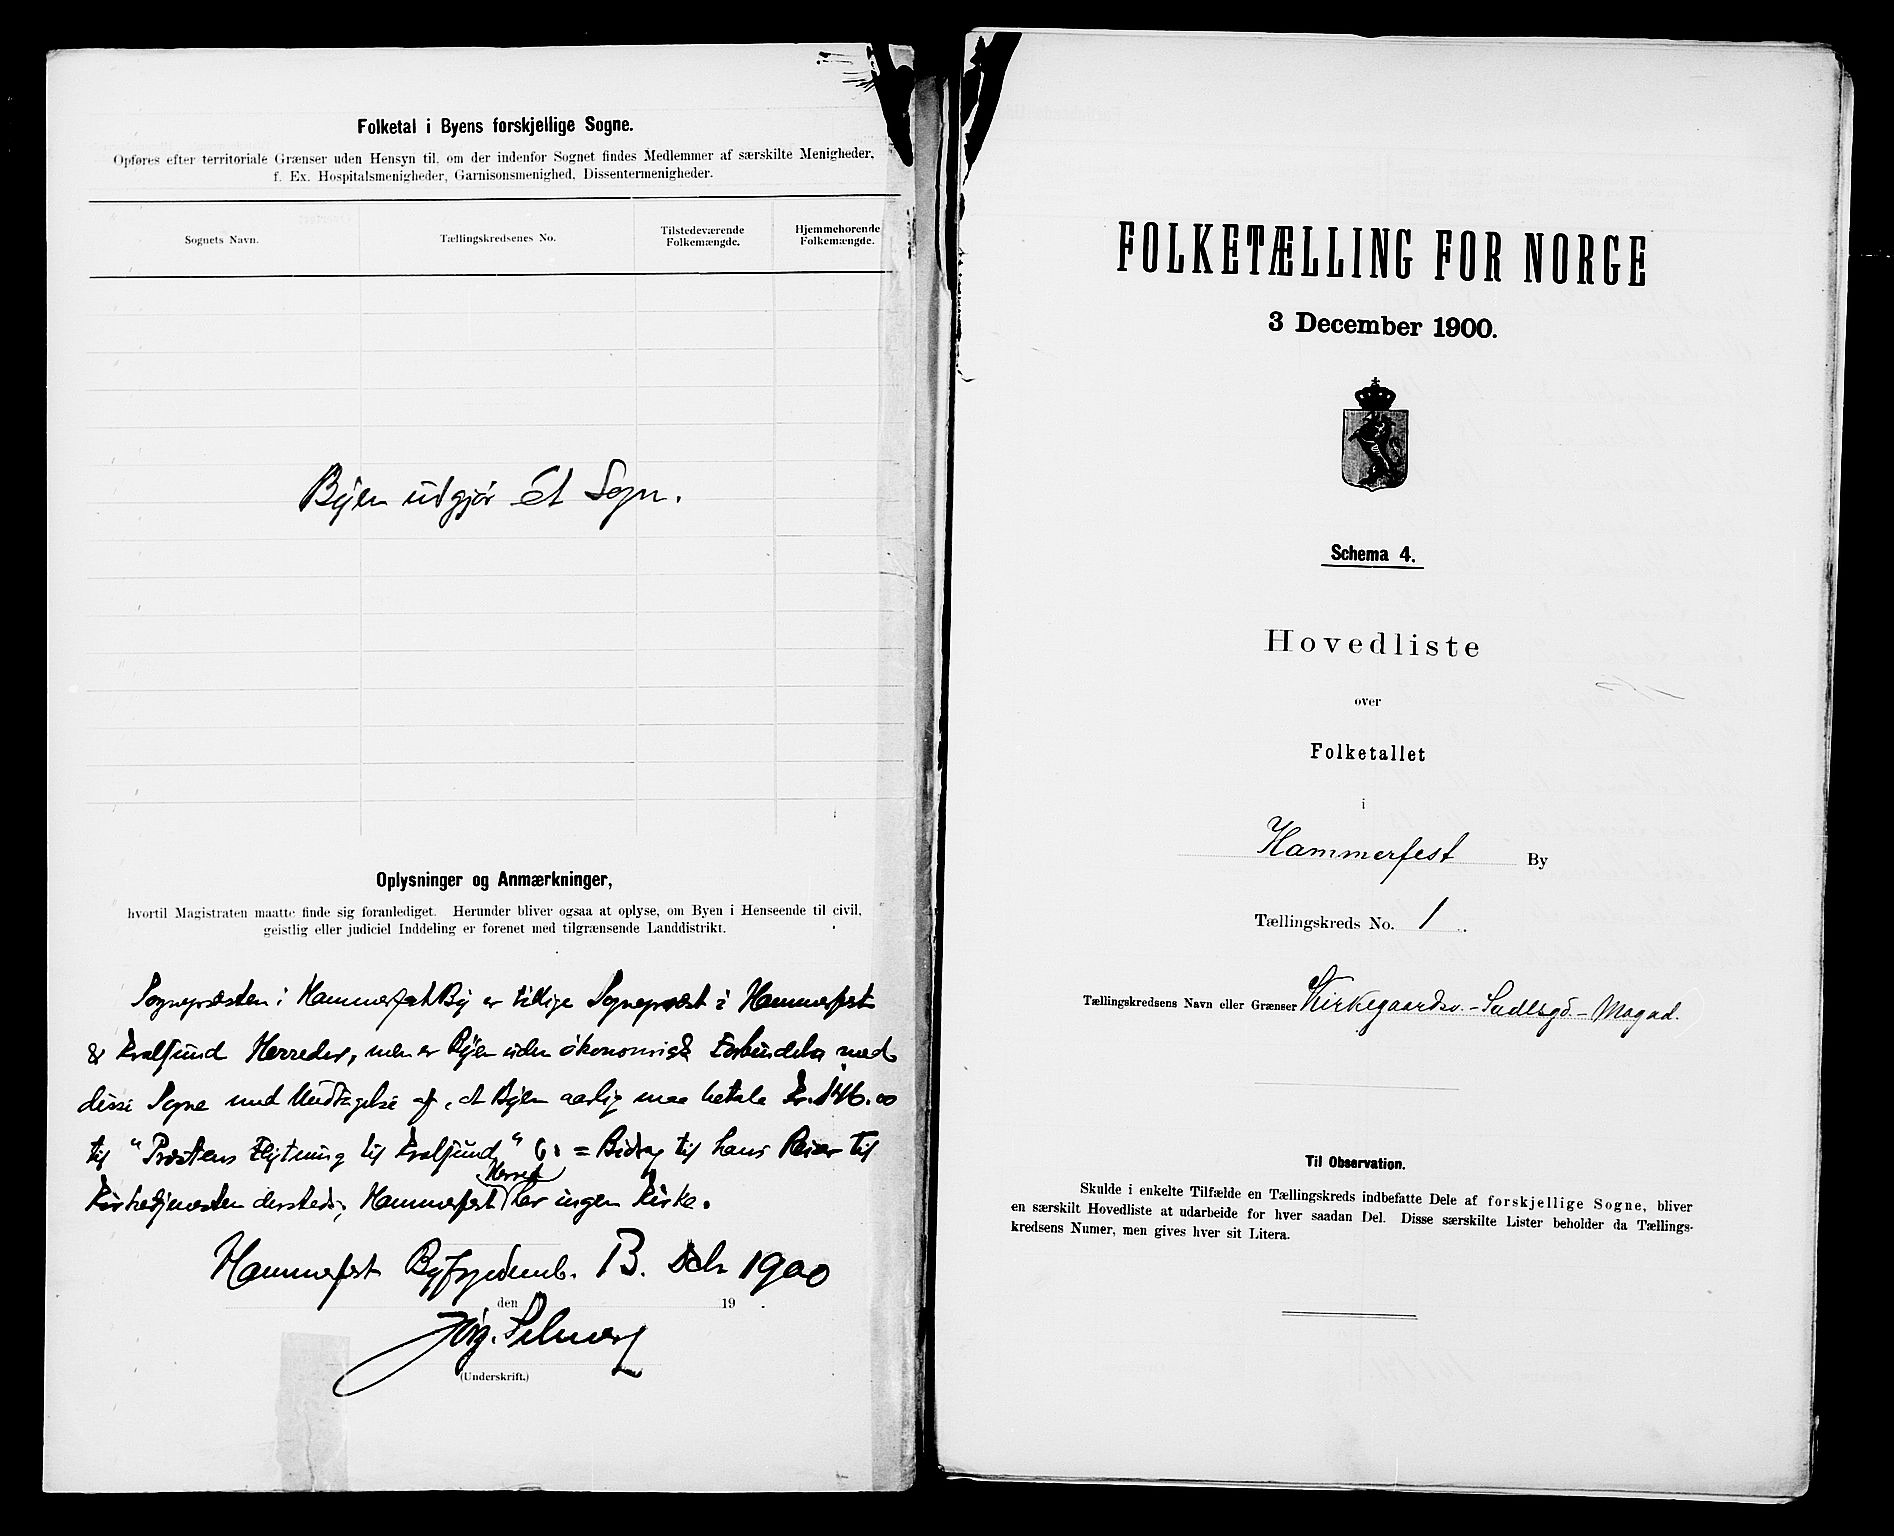 Folketal i Byens forskjellige Sogne.
Opføres efter territoriale Grænser uden Hensyn til, om der indenfor Sognet findes Medlemmer af særskilte Menigheder,
f. Ex. Hospitalsmenigheder, Garnisonsmenighed, Dissentermenigheder.
Sognets Navn.
Tællingskredsenes No.
Tilstedeværende
Folkemængde.
Hjemmehorende
Folkemængde.
Byen udgjør ét Sogn.
Oplysninger og Anmærkninger,
hvortil Magistraten maatte finde sig foranlediget. Herunder bliver ogsaa at oplyse, om Byen i Henseende til civil,
geistlig eller judiciel Inddeling er forenet med tilgrænsende Landdistrikt.
Sognepræsten i Hammerfest By er tillige Sognepræst i Hammerfest
& Kvalsund Herreder, men er Byen uden økonomisk Forbindelse med
disse Sogne med Undtagelse af, at Byen aarlig maa betale Kr. 146.00
til "Præstens Flytning til Kvalsund" = Bidrag til hans Reiser til
Kirketjenesten dersteds; Hammerfest Herred har ingen Kirke.
Hammerfest Byfogedemb. 13. 1900
den 19 .
Jørg.
(Underskrift.)
FOLKETÆLLING FOR NORGE
3 December 1900.
Schema 4.
Hovedliste
over
Folketallet
i
Hammerfest By
Tællingskreds No. 1
Tællingskredsens Navn eller Grænser Kirkegaardsv. - Sadlsgd. - Magad.
Til Observation.
Skulde i enkelte Tilfælde en Tællingskreds indbefatte Dele af forskjellige Sogne, bliver
en særskilt Hovedliste at udarbeide for hver saadan Del. Disse særskilte Lister beholder da Tællings-
kredsens Numer, men gives hver sit Litera.